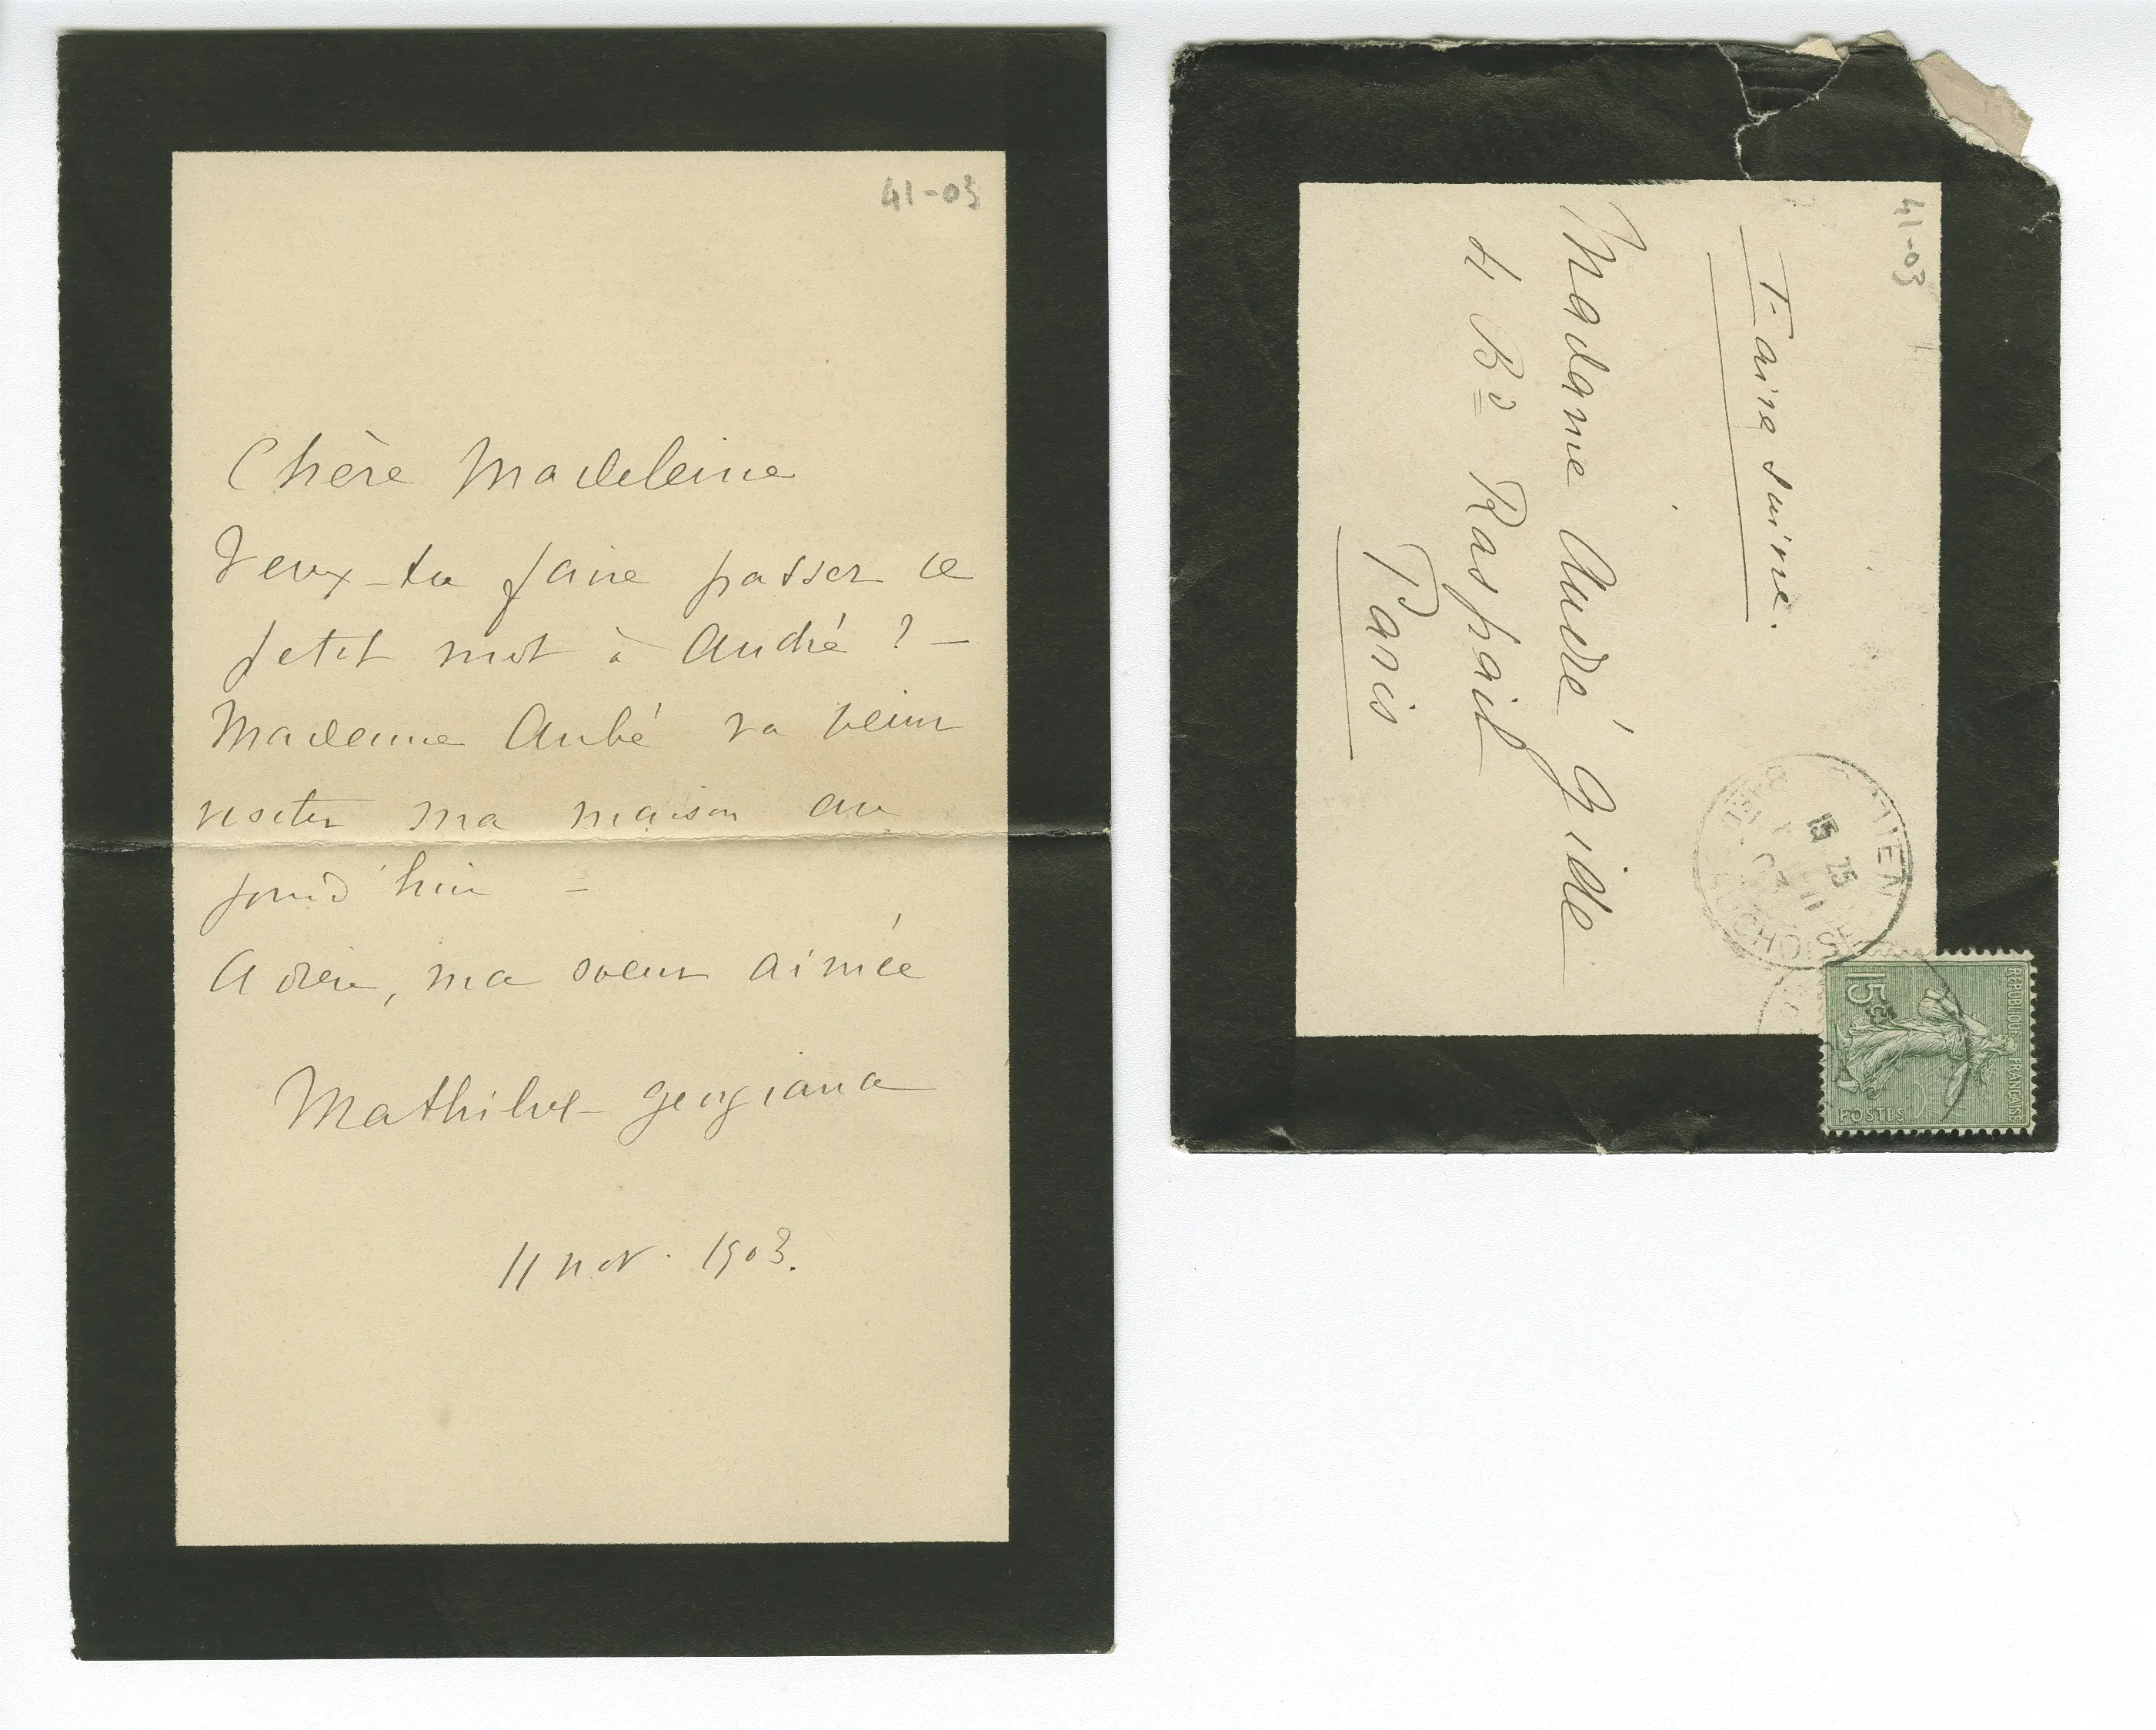 41-03
Chère Madeleine
Veux-tu faire passer ce
petit mot à André ? -
Madame Aubé va venir
visiter ma maison au
jourd'hui -
Adieu, ma soeur aimée
Mathilde-Georgiana
11 nov. 1903.
41-03
Faire suivre.
Madame André Gide
4 Bd Raspail
Paris
15 25
11
15c
REPUBLIQUE FRANÇAISE
POSTES